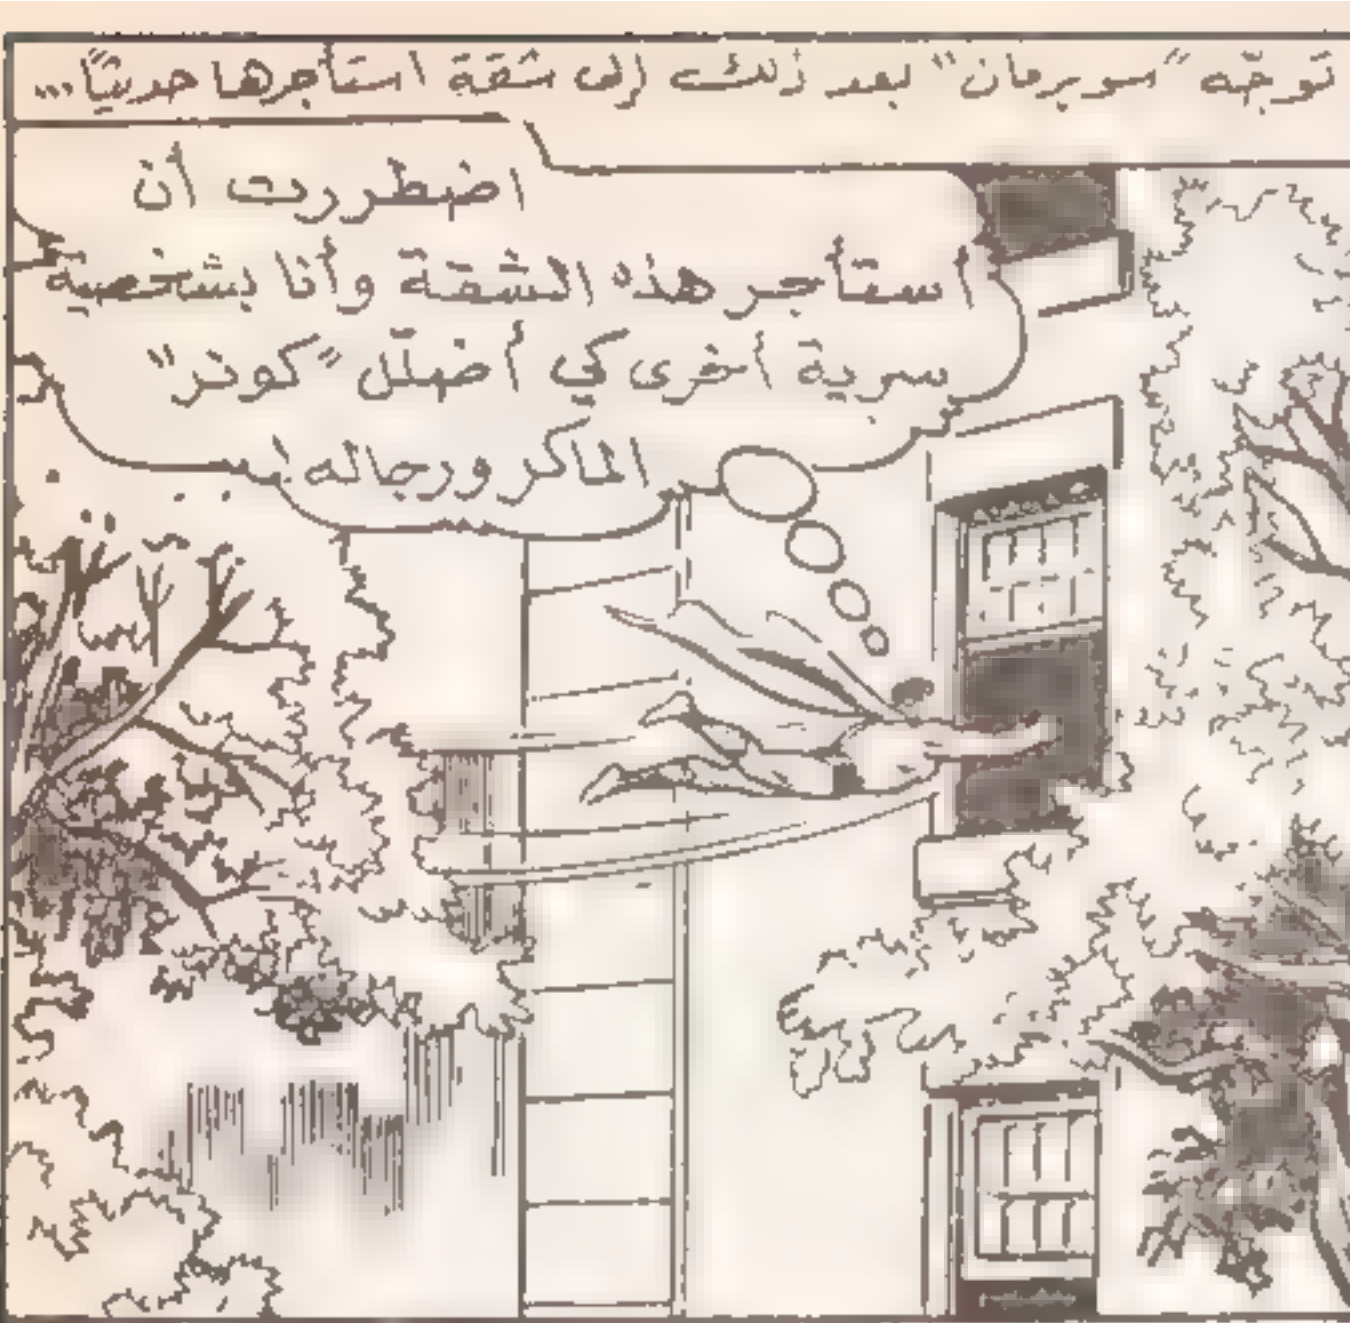 توجّه "سوبرمان" بعد ذلك إلى شقة استأجرها حديثًا...
اضطررت أن
أستأجر هذه الشقة وأنا بشخصية
سرية أخرى كي أضلّل "كونر"
الماكر ورجاله!